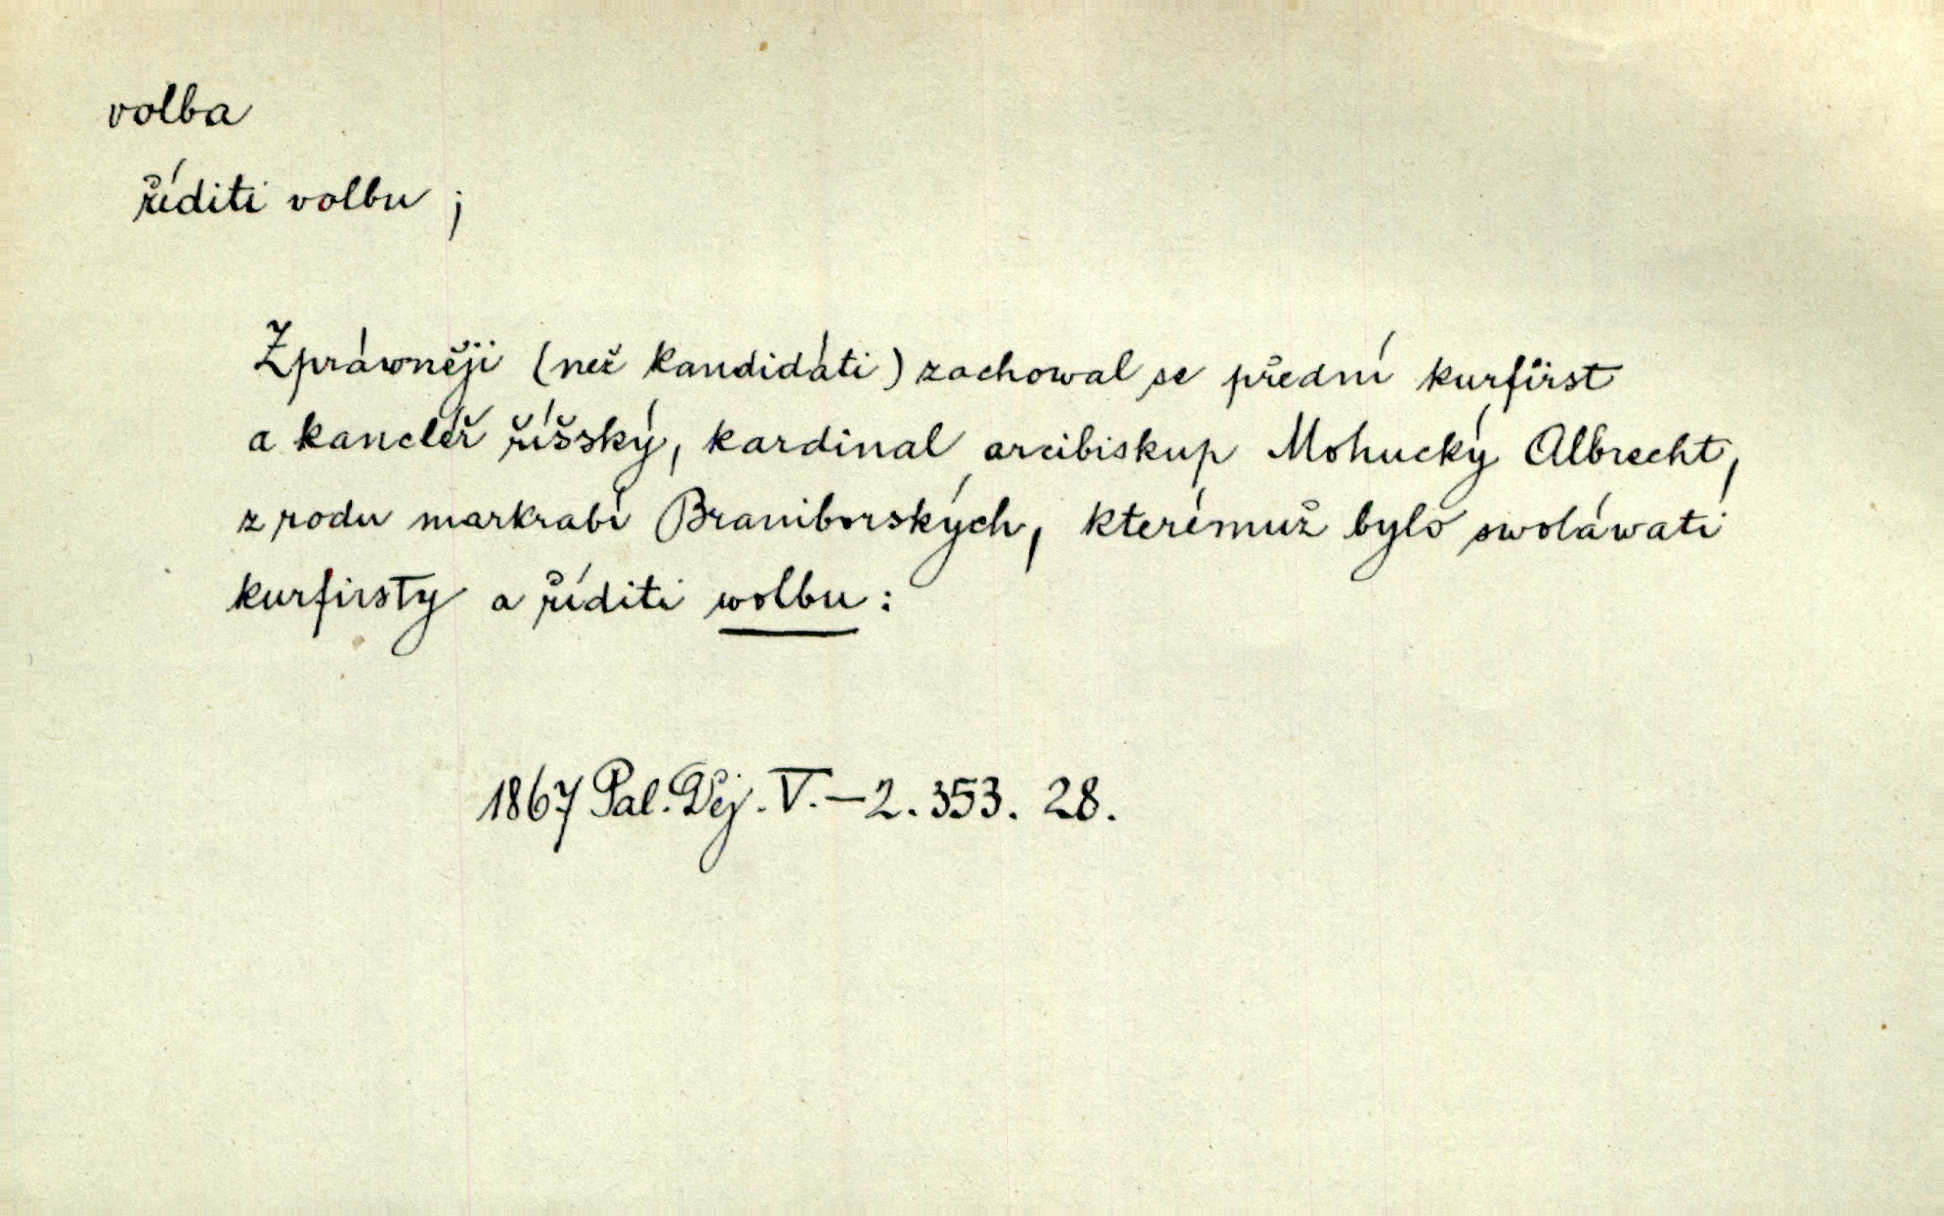 volba
říditi volbu ;
Zpráwněji (než kandidáti) zachowal se přední kurfirst
a kancléř říšský, kardinal arcibiskup Mohucký Albrecht,
z rodu markrabí Braniborských, kterémuž bylo swoláwati
kurfirsty a říditi wolbu :
1867 Pal. Děj. V. – 2. 353. 28.